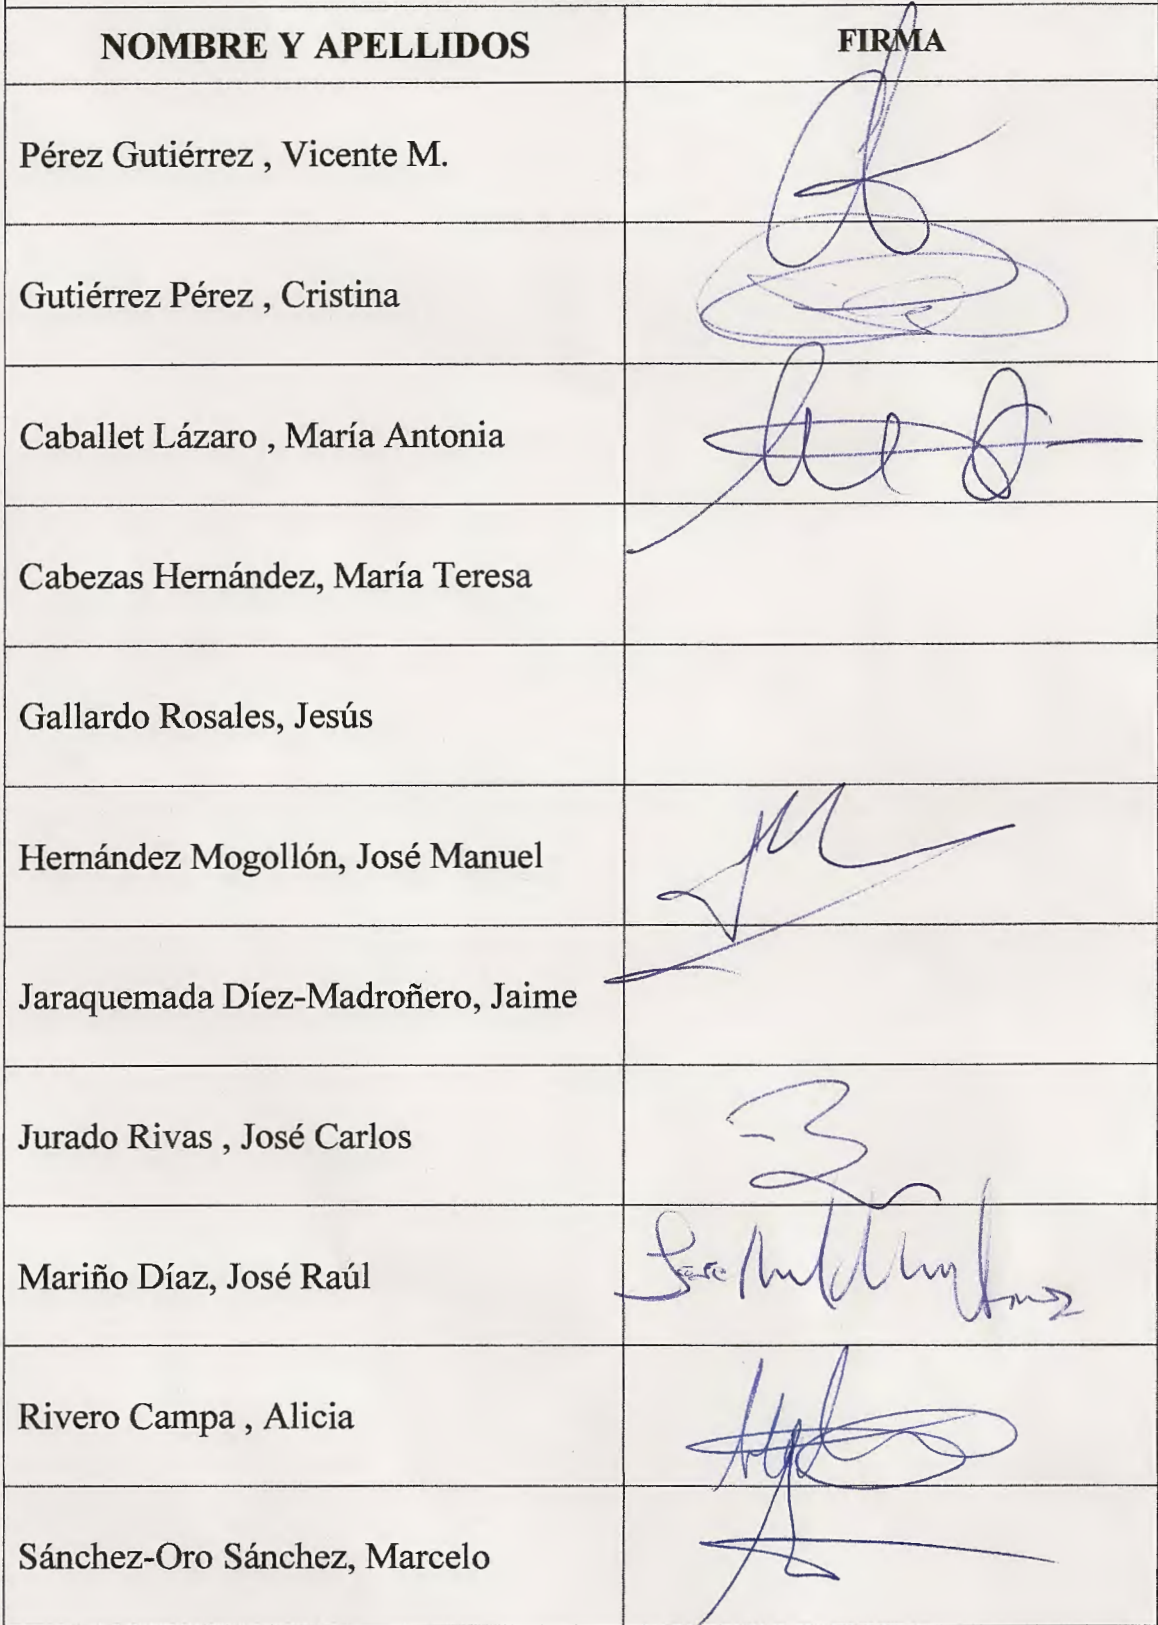 NOMBRE Y APELLIDOS FIRMA
Pérez Gutiérrez , Vicente M.
Gutiérrez Pérez , Cristina
Caballet Lázaro , María Antonia
Cabezas Hernández, María Teresa
Gallardo Rosales, Jesús
Hernández Mogollón, José Manuel
Jaraquemada Díez-Madroñero, Jaime
Jurado Rivas , José Carlos
Mariño Díaz, José Raúl
Rivero Campa , Alicia
Sánchez-Oro Sánchez, Marcelo